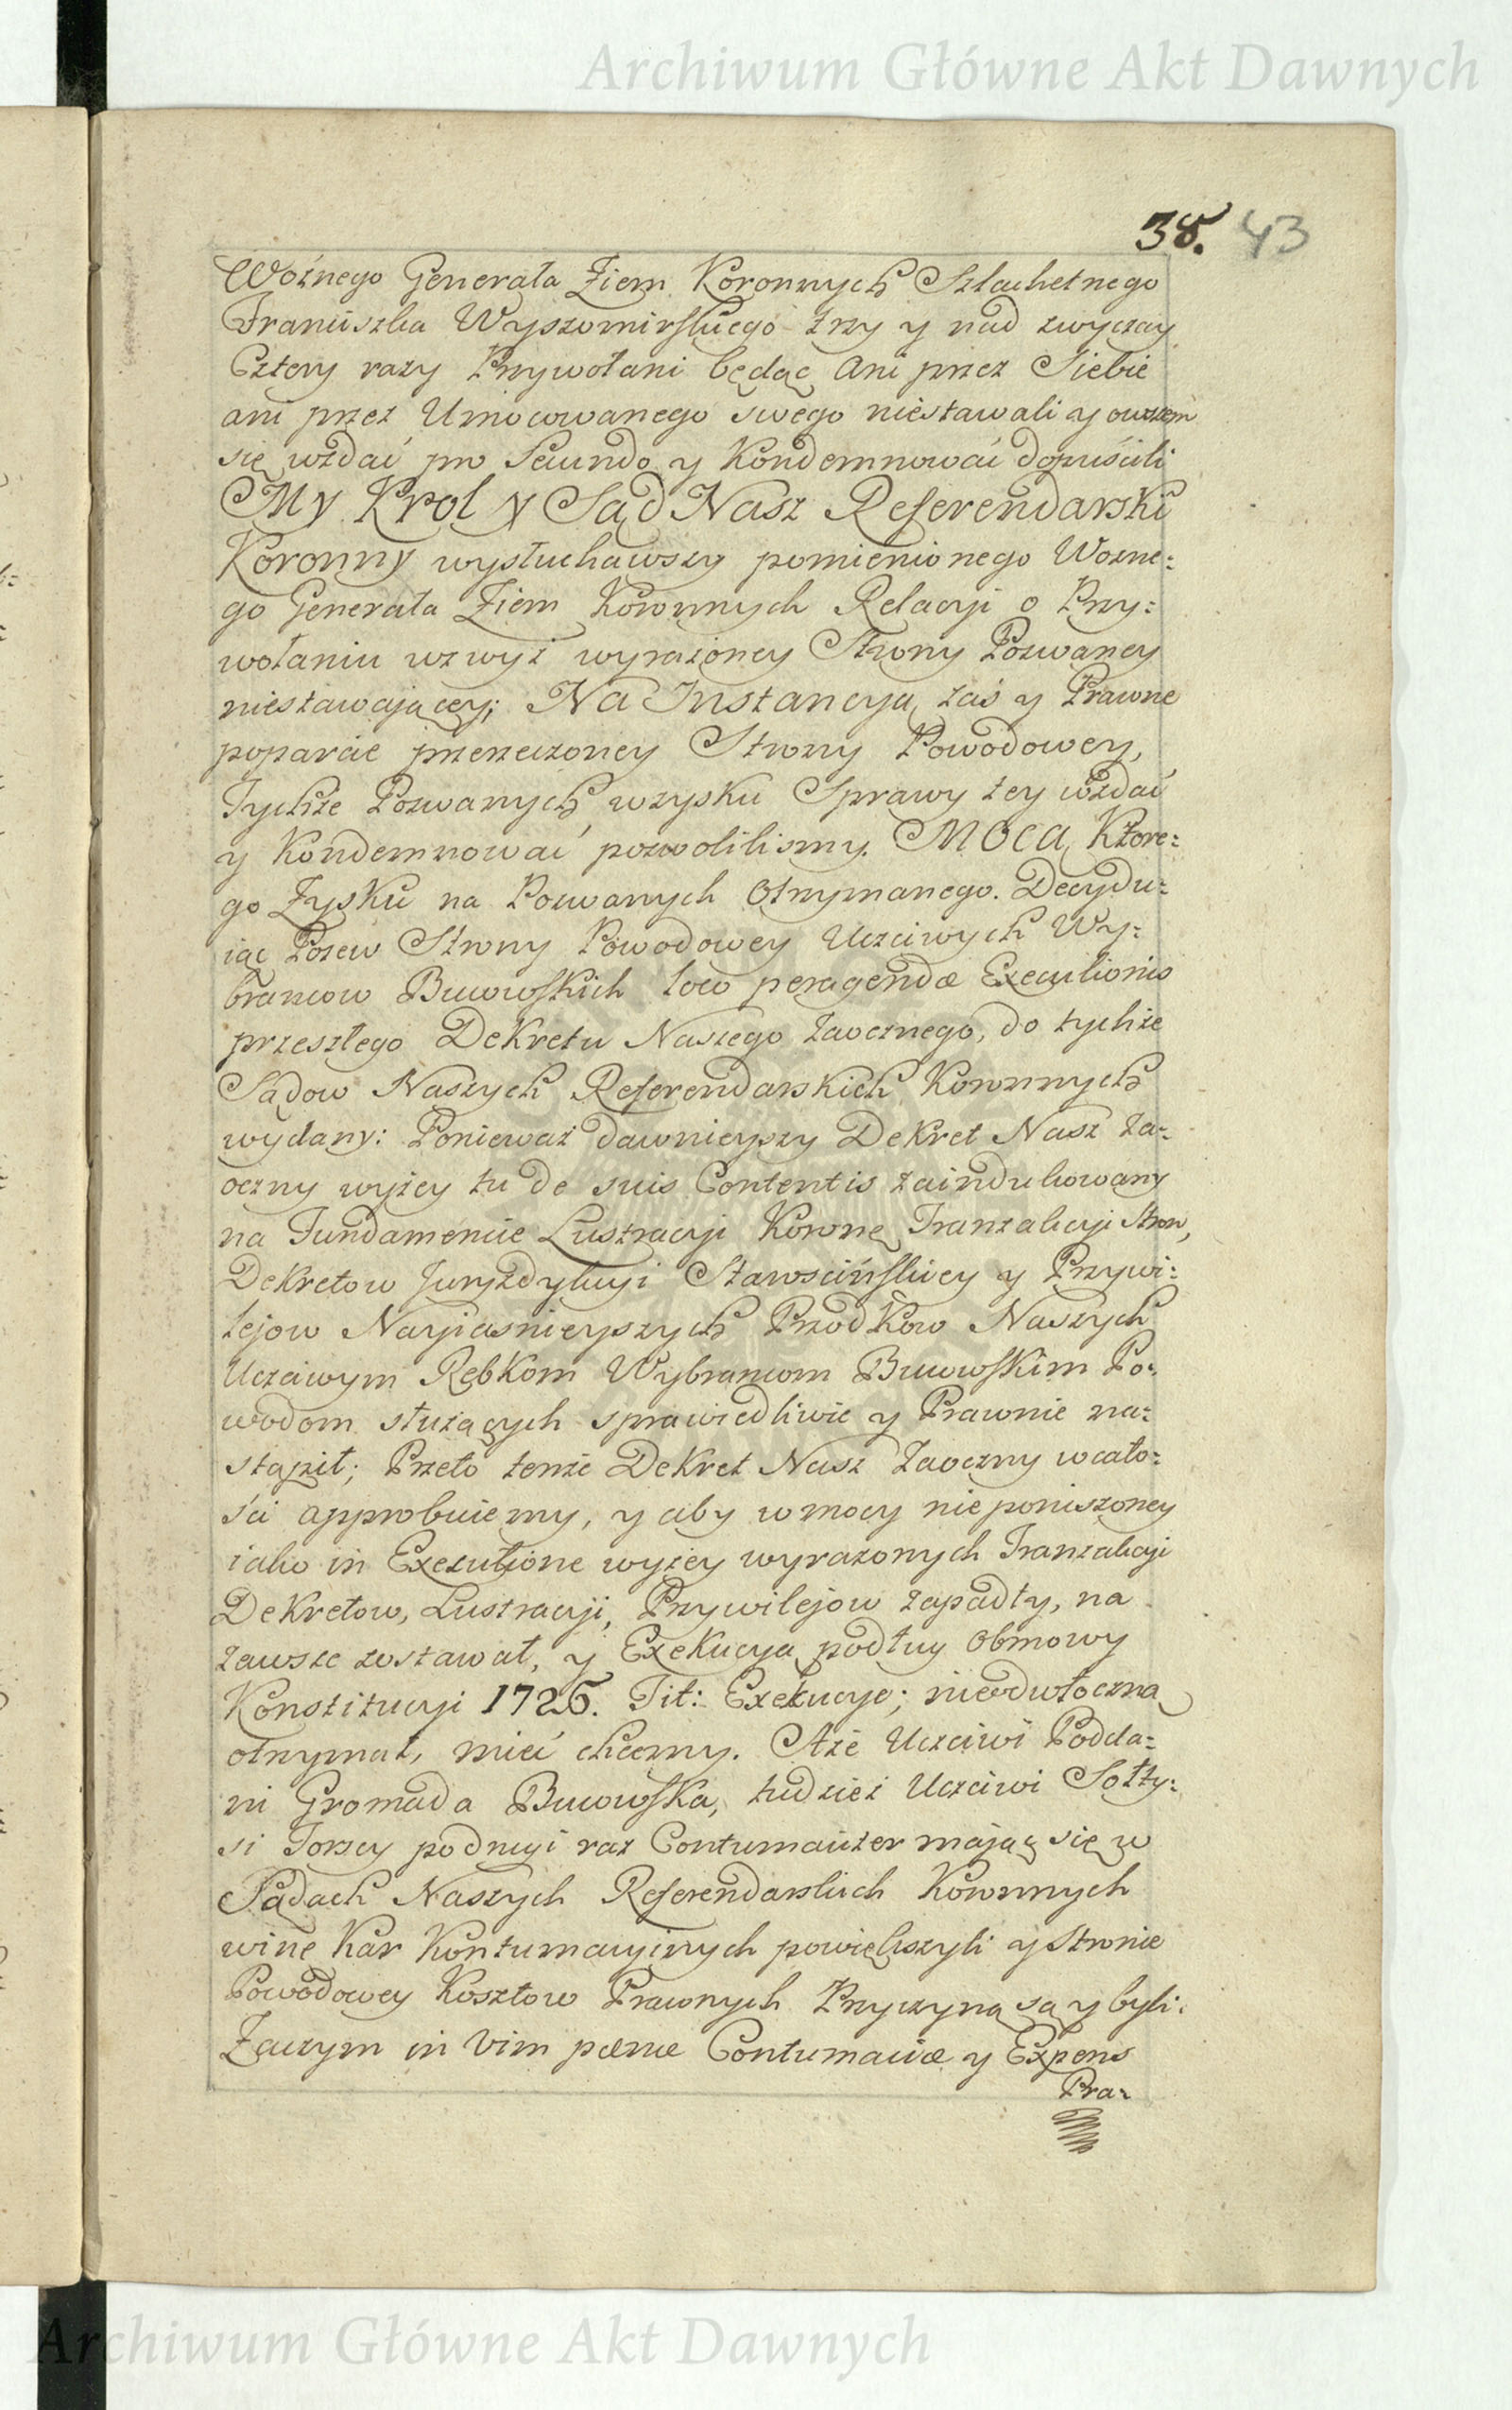 Archiwum Główne Akt Dawnych
38. 43
Woźnego Generała Ziem Koronnych Szlachetnego
Franciszka Wyszomirskiego trzy y nad zwyczay
Cztery razy Przywołani będąc Ani przez Siebie
ani przez Umocowanego swego niestawali y owszem
się wzdać pro Secundo y Kondemnować dopuścili
My Krol y Sąd Nasz Referendarski
Koronny wysłuchawszy pomienionego Wozne:
go Generała Ziem Koronnych Relacyi o Przy:
wołaniu wzwyż wyrażoney Strony Pozwaney
niestawaiącey; Na Instancyą zaś y Prawne
poparcie przerzeczoney Strony Powodowey,
Tychże Pozwanych wzysku Sprawy tey wzdać
y Kondemnować pozwolilismy. Mocą Ktore:
go Zysku na Pozwanych Otrzymanego. Decydu:
iąc Pozew Strony Powodowey Uczciwych Wy:
brancow Bucowskich loco peragendæ Executionis
przeszłego Dekretu Naszego Zaocznego, do tychże
Sądow Naszych Referendarskich Koronnych
wydany: Ponieważ dawnieyszy Dekret Nasz Za:
oczny wyżey tu de suis Contentis zaindukowany
na Fundamencie Lustracyi Koronne Tranzakcyi Stron,
Dekretow Juryzdykcyi Starościńskiey y Przywi:
lejow Nayiasnieyszych Przodkow Naszych
Uczciwym Rębkom Wybrancom Bucowskim Po:
wodom służących sprawiedliwie y Prawnie na:
stąpił; Przeto tenże Dekret Nasz Zaoczny wcało:
ści approbuiemy, y aby w mocy nieporuszoney
iako in Executione wyżey wyrażonych Tranzakcyi
Dekretow, Lustracyi, Przywilejow zapadły, na
zawsze zostawał, y Exekucyą podług Obmowy
Konstitucyi 1726. Tit: Exekucye; nieodwłoczną
otrzymał, mieć chcemy. Aże Uczciwi Podda:
ni Gromada Bucowska, tudzież Uczciwi Sołty:
si Torscy podrugi raz Contumaciter maiąc się w
Sądach Naszych Referendarskich Koronnych
winę Kar Kontumacyinych powiększyli y Stronie
Powodowey Kosztow Prawnych Przyczyną są y byli:
Zaczym in Vim pœnæ Contumaciæ y Expens
Pra:
Archiwum Główne Akt Dawnych